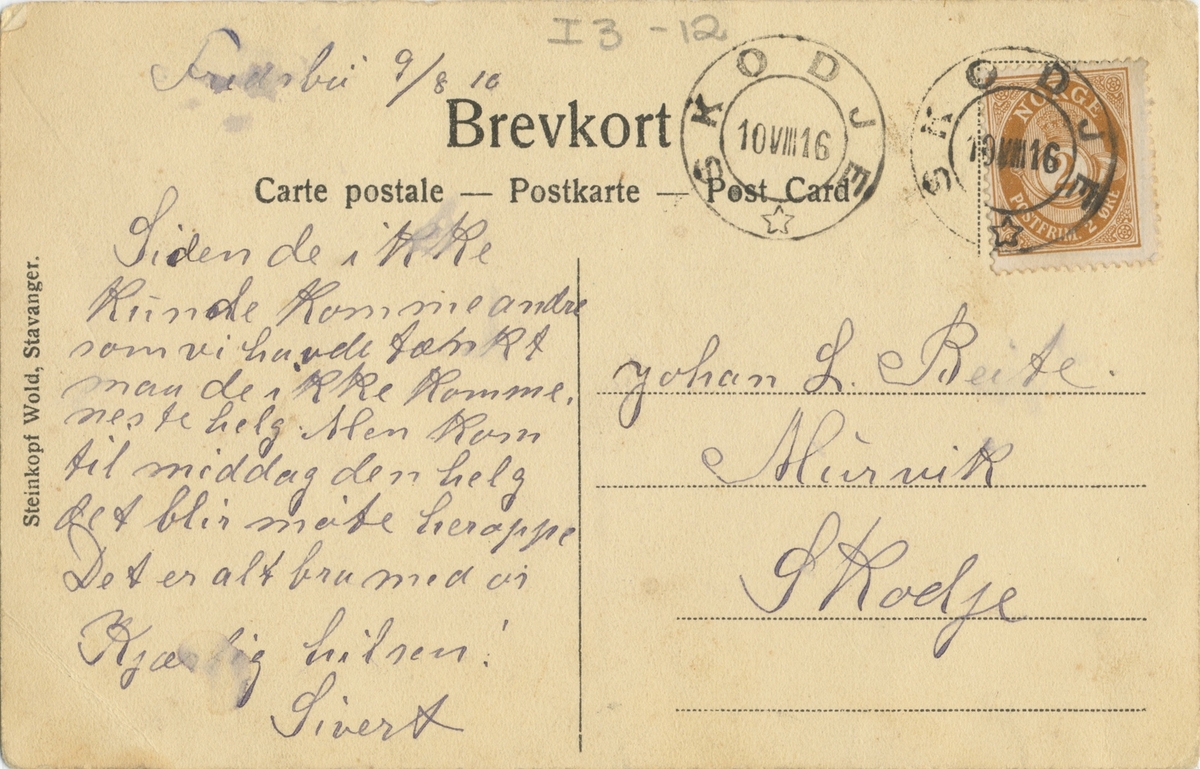 I 3 - 12
Fredsbü 9/8 10
Brevkort
Carte postale — Postkarte — Post Card
SKODJE
10 VIII 16
SKODJE
10 VIII 16
NORGE
POSTFRIM. 2 ØRE
Siden de ikke
kunde komme andre
som vi havde tænkt
maa de ikke komme.
neste helg. Men kom
til middag den helg
det blir møte heroppe
Det er alt bra med os
Kjærlig hilsen!
Sivert
Johan L. Reite.
Mürvik
Skodje
Steinkopf Wold, Stavanger.